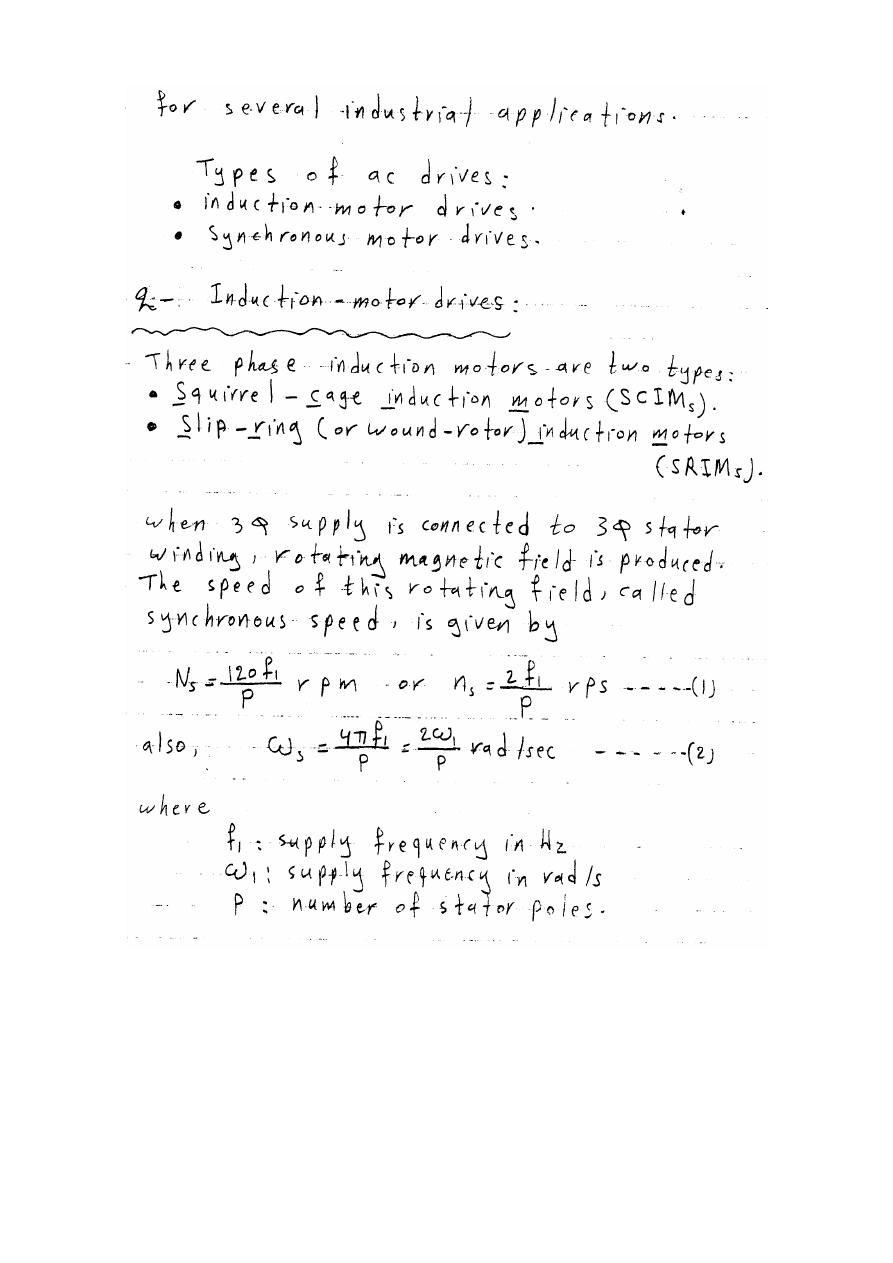 for several industrial applications.
Types of ac drives:
• induction motor drives.
• Synchronous motor drives.
Induction-motor drives:
Three phase induction motors are two types:
• Squirrel-cage induction motors (SCIMs).
• Slip-ring (or wound-rotor) induction motors
(SRIMs).
when 3φ supply is connected to 3φ stator
winding, rotating magnetic field is produced.
The speed of this rotating field, called
synchronous speed, is given by
Ns = 120 f₁ / P rpm or ns = 2 f₁ / P rps -----(1)
also, ωs = 4π f₁ / P = 2ω₁ / P rad/sec ------(2)
where
f₁ : supply frequency in Hz
ω₁ : supply frequency in rad/s
P : number of stator poles.